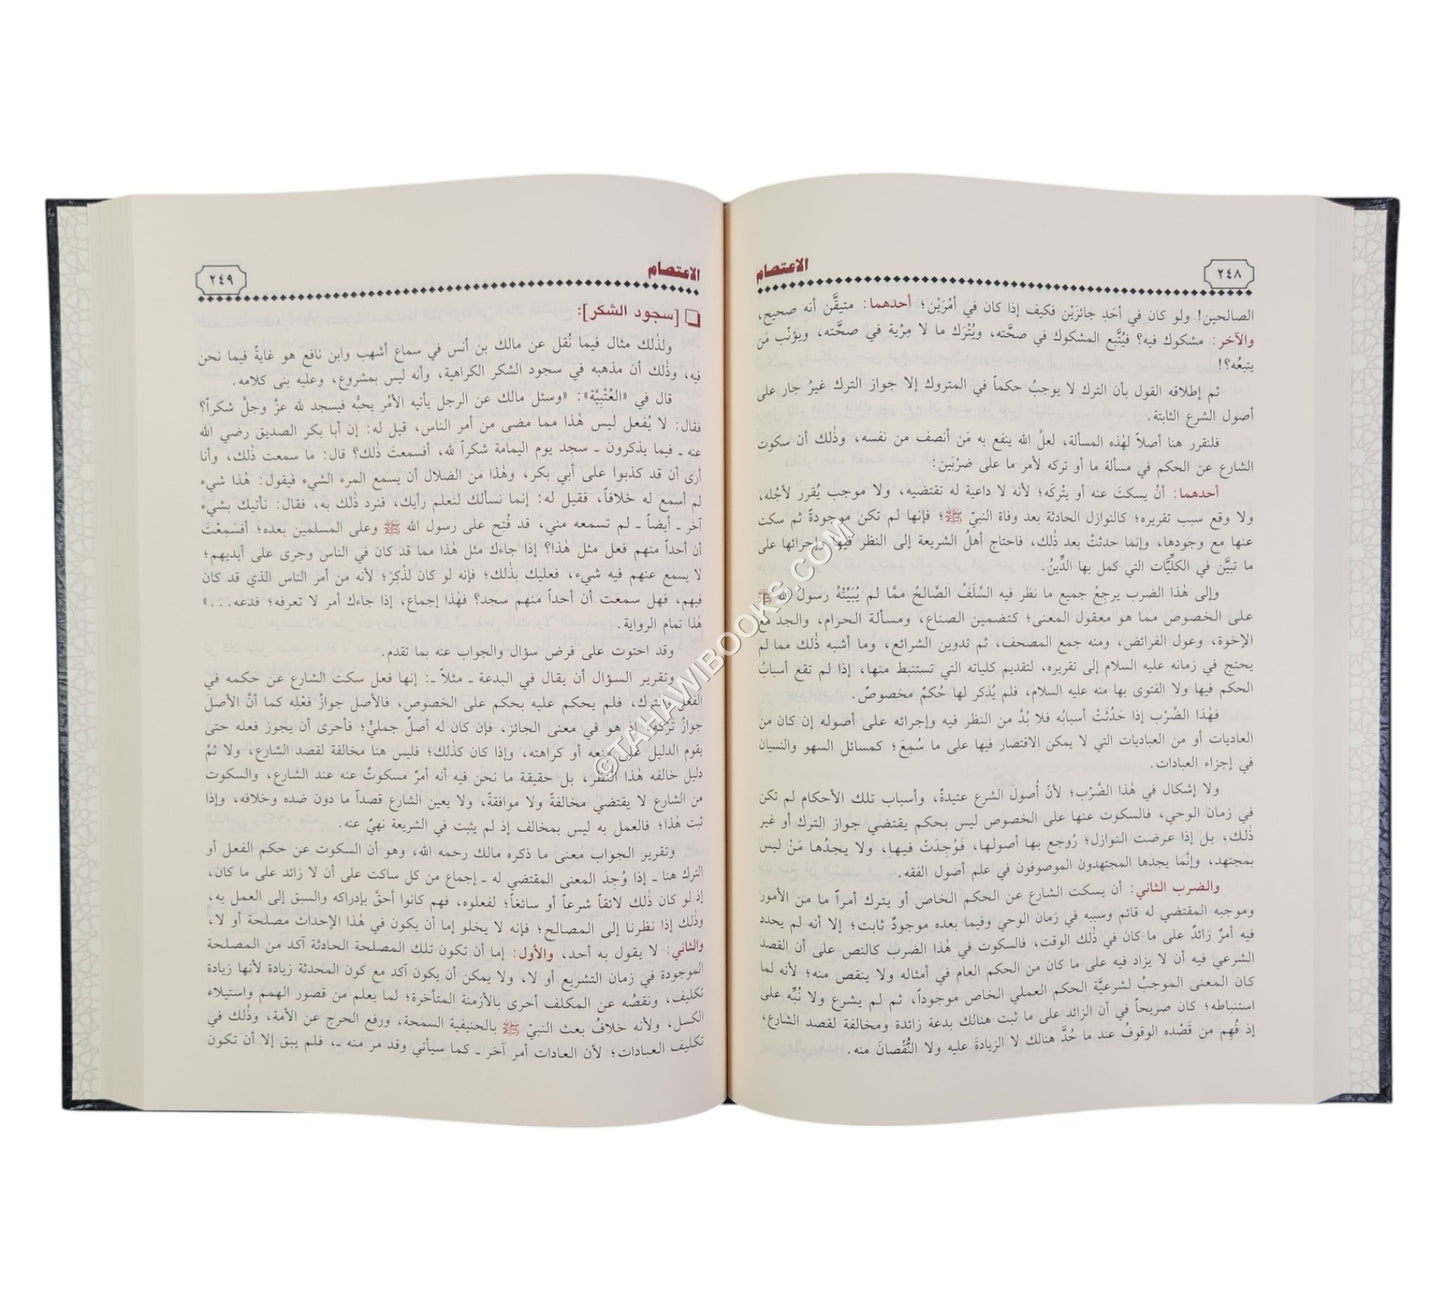 ٢٤٨
الاعتصام
الصالحين! ولو كان في أحَدِ جائزَيْن فكيف إذا كان في أمْرَيْن؛ أحدهما: متيقَّن أنه صحيح،
والآخر: مشكوك فيه؟ فيُتَّبع المشكوك في صحَّته، ويُتْرَك ما لا مِرْية في صحَّته، ويؤنّب مَن
يتبعُه؟!
ثم إطلاقه القول بأن الترك لا يوجبُ حكماً في المتروك إلا جواز الترك غيرُ جار على
أصول الشرع الثابتة.
فلنقرر هنا أصلاً لهٰذه المسألة، لعلَّ الله ينفع به مَن أنصف من نفسه، وذٰلك أن سكوت
الشارع عن الحكم في مسألة ما أو تركه لأمر ما على ضرْبَين:
أحدهما: أنْ يسكتَ عنه أو يتْركَه؛ لأنه لا داعية له تقتضيه، ولا موجب يُقرر لأجْله،
ولا وقع سبب تقريره؛ كالنوازل الحادثة بعد وفاة النبيّ ﷺ؛ فإنها لم تكن موجودةً ثم سكت
عنها مع وجودها، وإنما حدثتْ بعد ذٰلك، فاحتاج أهلُ الشريعة إلى النظر فيها وإجرائها على
ما تبيَّن في الكليَّات التي كمل بها الدِّينُ.
وإلى هٰذا الضرب يرجعُ جميع ما نظر فيه السَّلَفُ الصَّالحُ ممَّا لم يُبَيِّنْهُ رسولُ الله ﷺ
على الخصوص مما هو معقول المعنى؛ كتضمين الصناع، ومسألة الحرام، والجد مع
الإخوة، وعول الفرائض، ومنه جمع المصحف، ثم تدوين الشرائع، وما أشبه ذٰلك مما لم
يحتج في زمانه عليه السلام إلى تقريره، لتقديم كلياته التي تستنبط منها، إذا لم تقع أسبابُ
الحكم فيها ولا الفتوى بها منه عليه السلام، فلم يُذكر لها حُكمٌ مخصوصٌ.
فهٰذا الضَّرْب إذا حَدَثَتْ أسبابُه فلا بُدَّ من النظر فيه وإجرائه على أصوله إن كان من
العاديات أو من العباديات التي لا يمكن الاقتصار فيها على ما سُمِعَ؛ كمسائل السهو والنسيان
في إجزاء العبادات.
ولا إشكال في هٰذا الضَّرْب؛ لأنّ أُصولَ الشرع عتيدةٌ، وأسباب تلك الأحكام لم تكن
في زمان الوحي، فالسكوت عنها على الخصوص ليس بحكم يقتضي جواز الترك أو غير
ذٰلك، بل إذا عرضت النوازل؛ رُوجع بها أصولها، فوُجدَتْ فيها، ولا يجدُها مَنْ ليس
بمجتهد، وإنَّما يجدها المجتهدون الموصوفون في علم أصول الفقه.
والضرب الثاني: أن يسكت الشارع عن الحكم الخاص أو يترك أمراً ما من الأمور
وموجبه المقتضي له قائم وسببه في زمان الوحي وفيما بعده موجودٌ ثابت؛ إلا أنه لم يحدد
فيه أمرٌ زائدٌ على ما كان في ذٰلك الوقت، فالسكوت في هٰذا الضرب كالنص على أن القصد
الشرعي فيه أن لا يزاد فيه على ما كان من الحكم العام في أمثاله ولا ينقص منه؛ لأنه لما
كان المعنى الموجبُ لشرعيَّة الحكم العملي الخاص موجوداً، ثم لم يشرع ولا نُبِّه على
استنباطه؛ كان صريحاً في أن الزائد على ما ثبت هنالك بدعة زائدة ومخالفة لقصد الشارع،
إذ فُهِم من قَصْده الوقوفُ عند ما حُدَّ هنالك لا الزيادةَ عليه ولا النُّقْصانَ منه.
الاعتصام
٢٤٩
[سجود الشكر]:
ولذٰلك مثال فيما نُقل عن مالك بن أنس في سماع أشهب وابن نافع هو غايةٌ فيما نحن
فيه، وذٰلك أن مذهبه في سجود الشكر الكراهية، وأنه ليس بمشروع، وعليه بنى كلامه.
قال في «العُتْبِيَّة»: «وسئل مالك عن الرجل يأتيه الأمْر يحبُّه فيسجد لله عزَّ وجلَّ شكراً؟
فقال: لا يُفعل ليس هٰذا مما مضى من أمر الناس، قيل له: إن أبا بكر الصديق رضي الله
عنه ـ فيما يذكرون ـ سجد يوم اليمامة شكراً لله، أفسمعتَ ذٰلك؟ قال: ما سمعت ذٰلك، وأنا
أرى أن قد كذبوا على أبي بكر، وهٰذا من الضلال أن يسمع المرء الشيء فيقول: هٰذا شيء
لم أسمع له خلافاً، فقيل له: إنما نسألك لنعلم رأيك، فنرد ذٰلك به، فقال: نأتيك بشيء
آخر ـ أيضاً ـ لم تسمعه مني، قد فُتح على رسول الله ﷺ وعلى المسلمين بعده؛ أفسَمعْتَ
أن أحداً منهم فعل مثل هٰذا؟ إذا جاءك مثل هٰذا مما قد كان في الناس وجرى على أيديهم؛
لا يسمع عنهم فيه شيء، فعليك بذٰلك؛ فإنه لو كان لذُكِرَ؛ لأنه من أمر الناس الذي قد كان
فيهم، فهل سمعت أن أحداً منهم سجد؟ فهٰذا إجماع، إذا جاءك أمر لا تعرفه؛ فدعه...»
هٰذا تمام الرواية.
وقد احتوت على فرض سؤال والجواب عنه بما تقدم.
وتقرير السؤال أن يقال في البدعة ـ مثلاً ـ: إنها فعل سكت الشارع عن حكمه في
الفعل والترك، فلم يحكم عليه بحكم على الخصوص، فالأصل جوازُ فعْله كما أنَّ الأصلَ
جوازُ تركه، إذ هو في معنى الجائز، فإن كان له أصلٌ جمليٌّ؛ فأحرى أن يجوز فعله حتى
يقوم الدليل على منعه أو كراهته، وإذا كان كذٰلك؛ فليس هنا مخالفة لقصد الشارع، ولا ثمَّ
دليل خالفه هٰذا النظر، بل حقيقة ما نحن فيه أنه أمرٌ مسكوتٌ عنه عند الشارع، والسكوت
من الشارع لا يقتضي مخالفةً ولا موافقةً، ولا يعين الشارع قصداً ما دون ضده وخلافه، وإذا
ثبت هٰذا؛ فالعمل به ليس بمخالف إذ لم يثبت في الشريعة نهيٌ عنه.
وتقرير الجواب معنى ما ذكره مالك رحمه الله، وهو أن السكوت عن حكم الفعل أو
الترك هنا ـ إذا وُجِدَ المعنى المقتضي له ـ إجماع من كل ساكت على أن لا زائد على ما كان،
إذ لو كان ذٰلك لائقاً شرعاً أو سائغاً؛ لفعلوه، فهم كانوا أحقَّ بإدراكه والسبق إلى العمل به،
وذٰلك إذا نظرنا إلى المصالح؛ فإنه لا يخلو إما أن يكون في هٰذا الإحداث مصلحة أو لا،
والثاني: لا يقول به أحد، والأول: إما أن تكون تلك المصلحة الحادثة آكد من المصلحة
الموجودة في زمان التشريع أو لا، ولا يمكن أن يكون آكد مع كون المحدثة زيادة لأنها زيادة
تكليف، ونقصُه عن المكلف أحرى بالأزمنة المتأخرة؛ لما يعلم من قصور الهمم واستيلاء
الكسل، ولأنه خلافُ بعث النبيّ ﷺ بالحنيفية السمحة، ورفع الحرج عن الأمة، وذٰلك في
تكليف العبادات؛ لأن العادات أمر آخر ـ كما سيأتي وقد مر منه ـ، فلم يبق إلا أن تكون
©TAHAWIBOOKS.COM